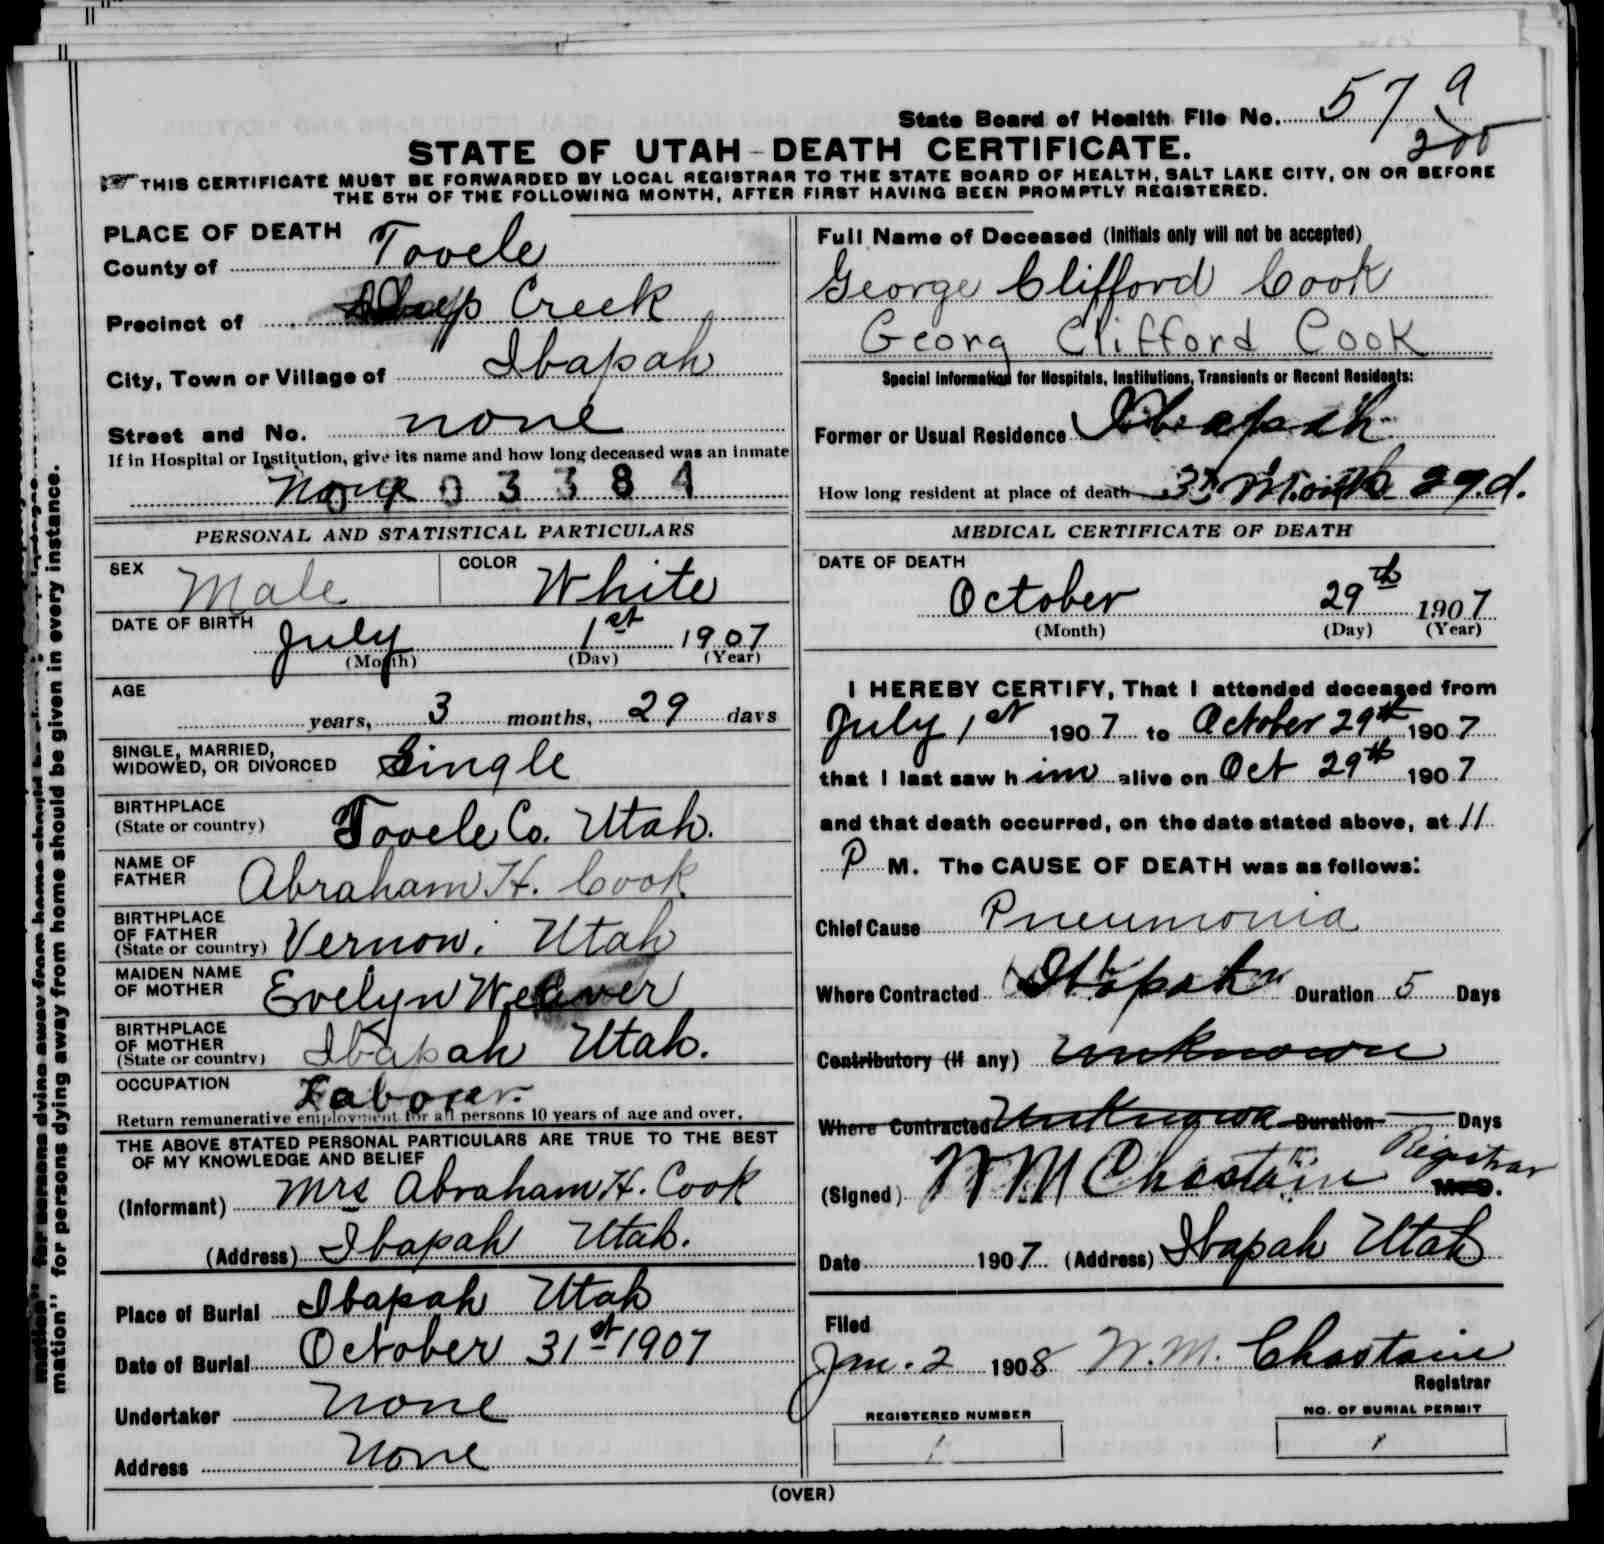 State Board of Health File No. 57 9
200
STATE OF UTAH-DEATH CERTIFICATE.
THIS CERTIFICATE MUST BE FORWARDED BY LOCAL REGISTRAR TO THE STATE BOARD OF HEALTH, SALT LAKE CITY, ON OR BEFORE
THE 5TH OF THE FOLLOWING MONTH, AFTER FIRST HAVING BEEN PROMPTLY REGISTERED.
PLACE OF DEATH
County of Tooele
Precinct of Deep Creek
City, Town or Village of Ibapah
Street and No. none
If in Hospital or Institution, give its name and how long deceased was an inmate
None 03384
PERSONAL AND STATISTICAL PARTICULARS
SEX Male COLOR White
DATE OF BIRTH July 1st 1907
(Month) (Day) (Year)
AGE
years, 3 months, 29 days
SINGLE, MARRIED,
WIDOWED, OR DIVORCED Single
BIRTHPLACE
(State or country) Tooele Co. Utah.
NAME OF
FATHER Abraham H. Cook
BIRTHPLACE
OF FATHER
(State or country) Vernon. Utah
MAIDEN NAME
OF MOTHER Evelyn Weaver
BIRTHPLACE
OF MOTHER
(State or country) Ibapah Utah.
OCCUPATION Laborer.
Return remunerative employment for all persons 10 years of age and over.
THE ABOVE STATED PERSONAL PARTICULARS ARE TRUE TO THE BEST
OF MY KNOWLEDGE AND BELIEF
(Informant) Mrs Abraham H. Cook
(Address) Ibapah Utah.
Place of Burial Ibapah Utah
Date of Burial October 31st 1907
Undertaker None
Address None
Full Name of Deceased (Initials only will not be accepted)
George Clifford Cook
Georg Clifford Cook
Special Information for Hospitals, Institutions, Transients or Recent Residents:
Former or Usual Residence Ibapah
How long resident at place of death 3 Month 29.d.
MEDICAL CERTIFICATE OF DEATH
DATE OF DEATH
October 29th 1907
(Month) (Day) (Year)
I HEREBY CERTIFY, That I attended deceased from
July 1st 1907 to October 29th 1907
that I last saw him alive on Oct 29th 1907
and that death occurred, on the date stated above, at 11
P M. The CAUSE OF DEATH was as follows:
Chief Cause Pneumonia
Where Contracted Ibapah Duration 5 Days
Contributory (if any) Unknown
Where Contracted Unknown Duration Days
(Signed) W M Chastain Registrar M.D.
Date 1907 (Address) Ibapah Utah
Filed
Jan. 2 1908 W. M. Chastain
Registrar
REGISTERED NUMBER
1
NO. OF BURIAL PERMIT
1
(OVER)
mation" for persons dying away from home should be given in every instance.